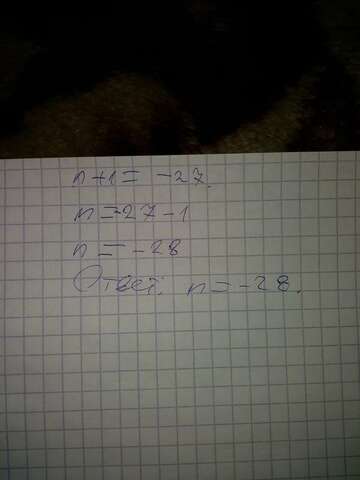 n+1= -27.
n=-27-1
n=-28
Ответ: n=-28.